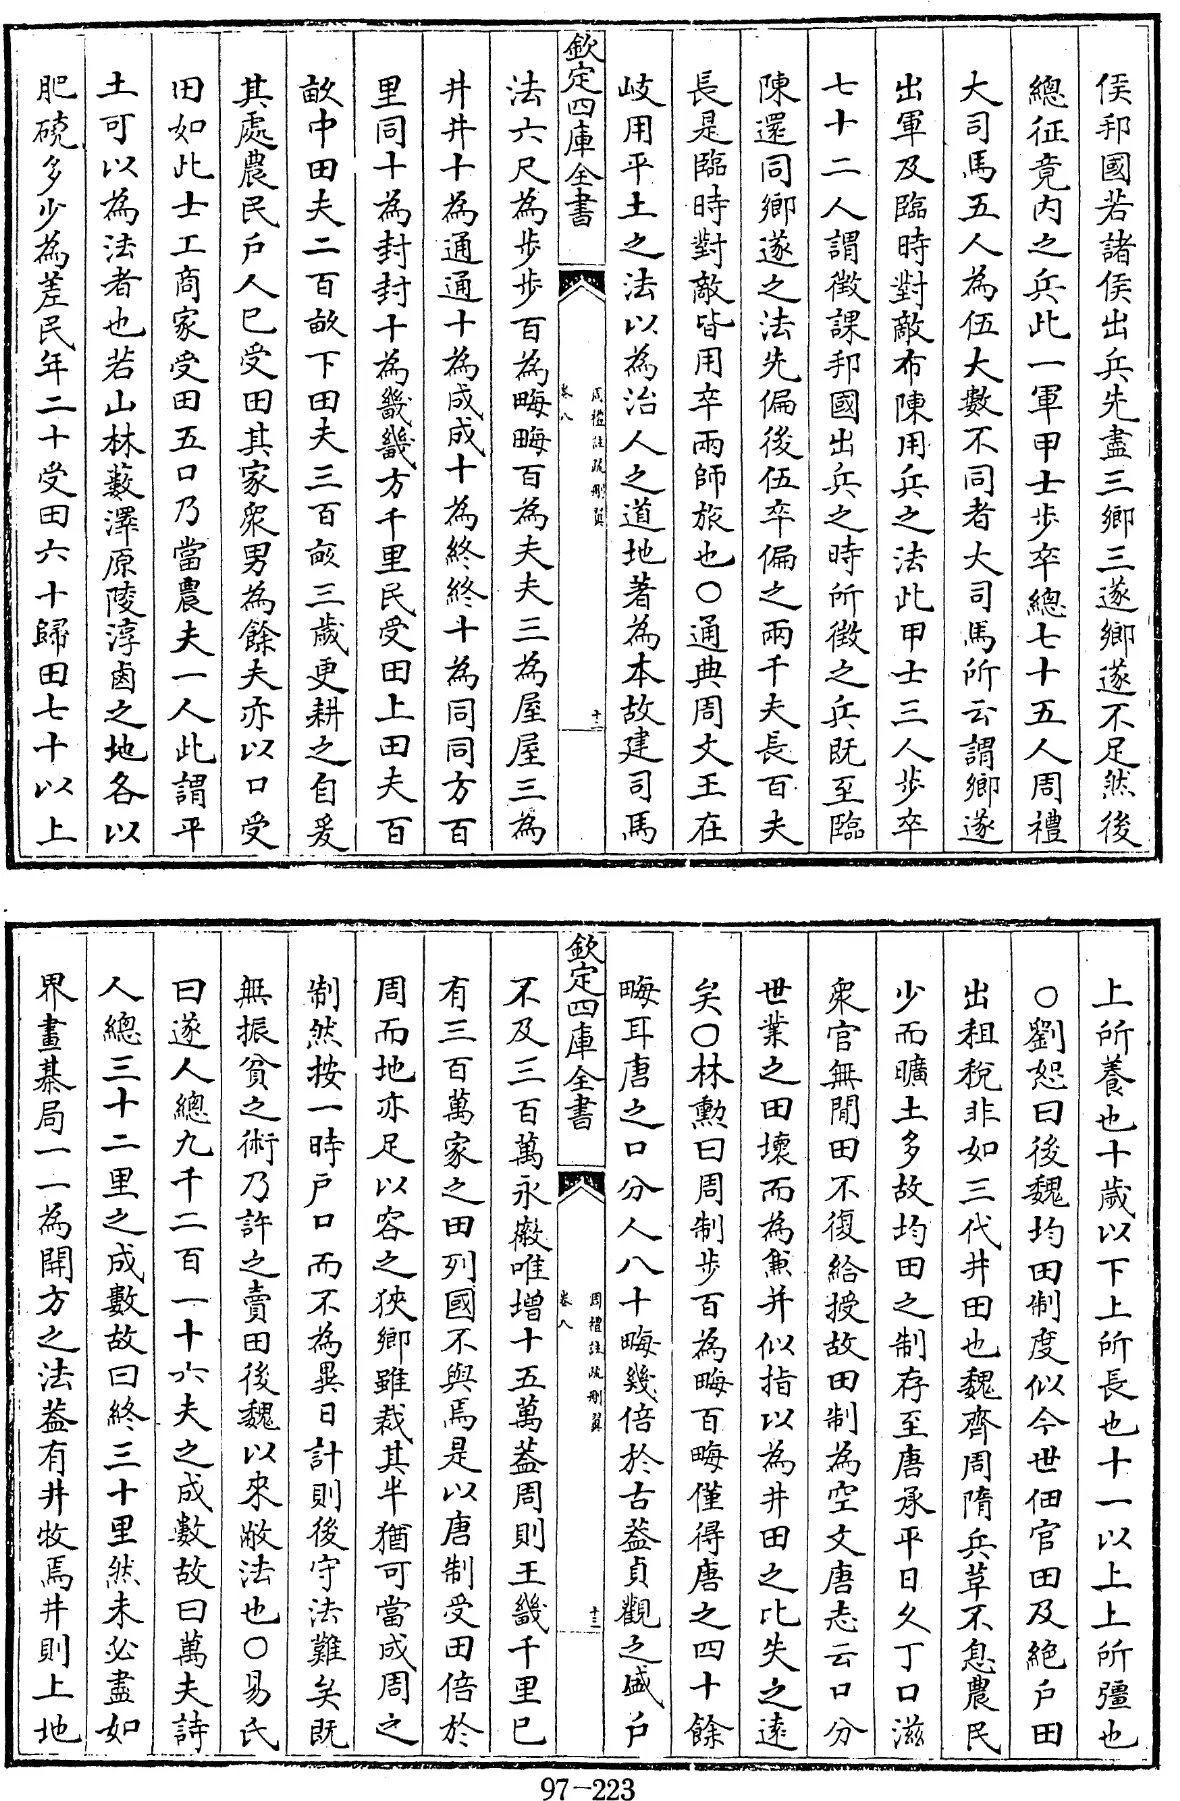 侯邦國若諸侯出兵先盡三鄉三遂鄉遂不足然後
總征竟内之兵此一軍甲士步卒總七十五人周禮
大司馬五人為伍大數不同者大司馬所云謂鄉遂
出軍及臨時對敵布陳用兵之法此甲士三人步卒
七十二人謂徵課邦國出兵之時所徵之兵既至臨
陳還同鄉遂之法先偏後伍卒偏之兩千夫長百夫
長是臨時對敵皆用卒兩師旅也○通典周文王在
岐用平土之法以為治人之道地著為本故建司馬
欽定四庫全書
周禮註疏刪翼
卷八
十二
法六尺為步步百為畮畮百為夫夫三為屋屋三為
井井十為通通十為成成十為終終十為同同方百
里同十為封封十為畿畿方千里民受田上田夫百
畝中田夫二百畝下田夫三百畝三歲更耕之自爰
其處農民户人已受田其家衆男為餘夫亦以口受
田如此士工商家受田五口乃當農夫一人此謂平
土可以為法者也若山林藪澤原陵淳鹵之地各以
肥磽多少為差民年二十受田六十歸田七十以上
上所養也十歲以下上所長也十一以上上所彊也
○劉恕曰後魏均田制度似今世佃官田及絶户田
出租税非如三代井田也魏齊周隋兵革不息農民
少而曠土多故均田之制存至唐承平日久丁口滋
衆官無閒田不復給授故田制為空文唐志云口分
世業之田壞而為兼并似指以為井田之比失之遠
矣○林勳曰周制步百為畮百畮僅得唐之四十餘
畮耳唐之口分人八十畮幾倍於古葢貞觀之盛户
欽定四庫全書
周禮註疏刪翼
卷八
十三
不及三百萬永徽唯增十五萬葢周則王畿千里已
有三百萬家之田列國不與焉是以唐制受田倍於
周而地亦足以容之狹鄉雖裁其半猶可當成周之
制然按一時户口而不為異日計則後守法難矣既
無振貧之術乃許之賣田後魏以來敝法也○易氏
曰遂人總九千二百一十六夫之成數故曰萬夫詩
人總三十二里之成數故曰終三十里然未必盡如
界畫棊局一一為開方之法葢有井牧焉井則上地
97-223